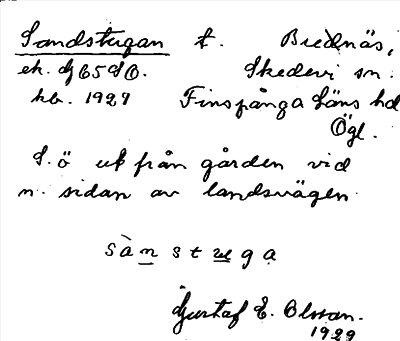 Sandstugan t. Brednäs,
ek. bl 65 SO. Skedevi sn.
hb. 1927 Finspånga läns hd
Ögl.
S. ö ut från gården vid
n. sidan av landsvägen
sànstuga
Gustaf E. Olsson.
1929